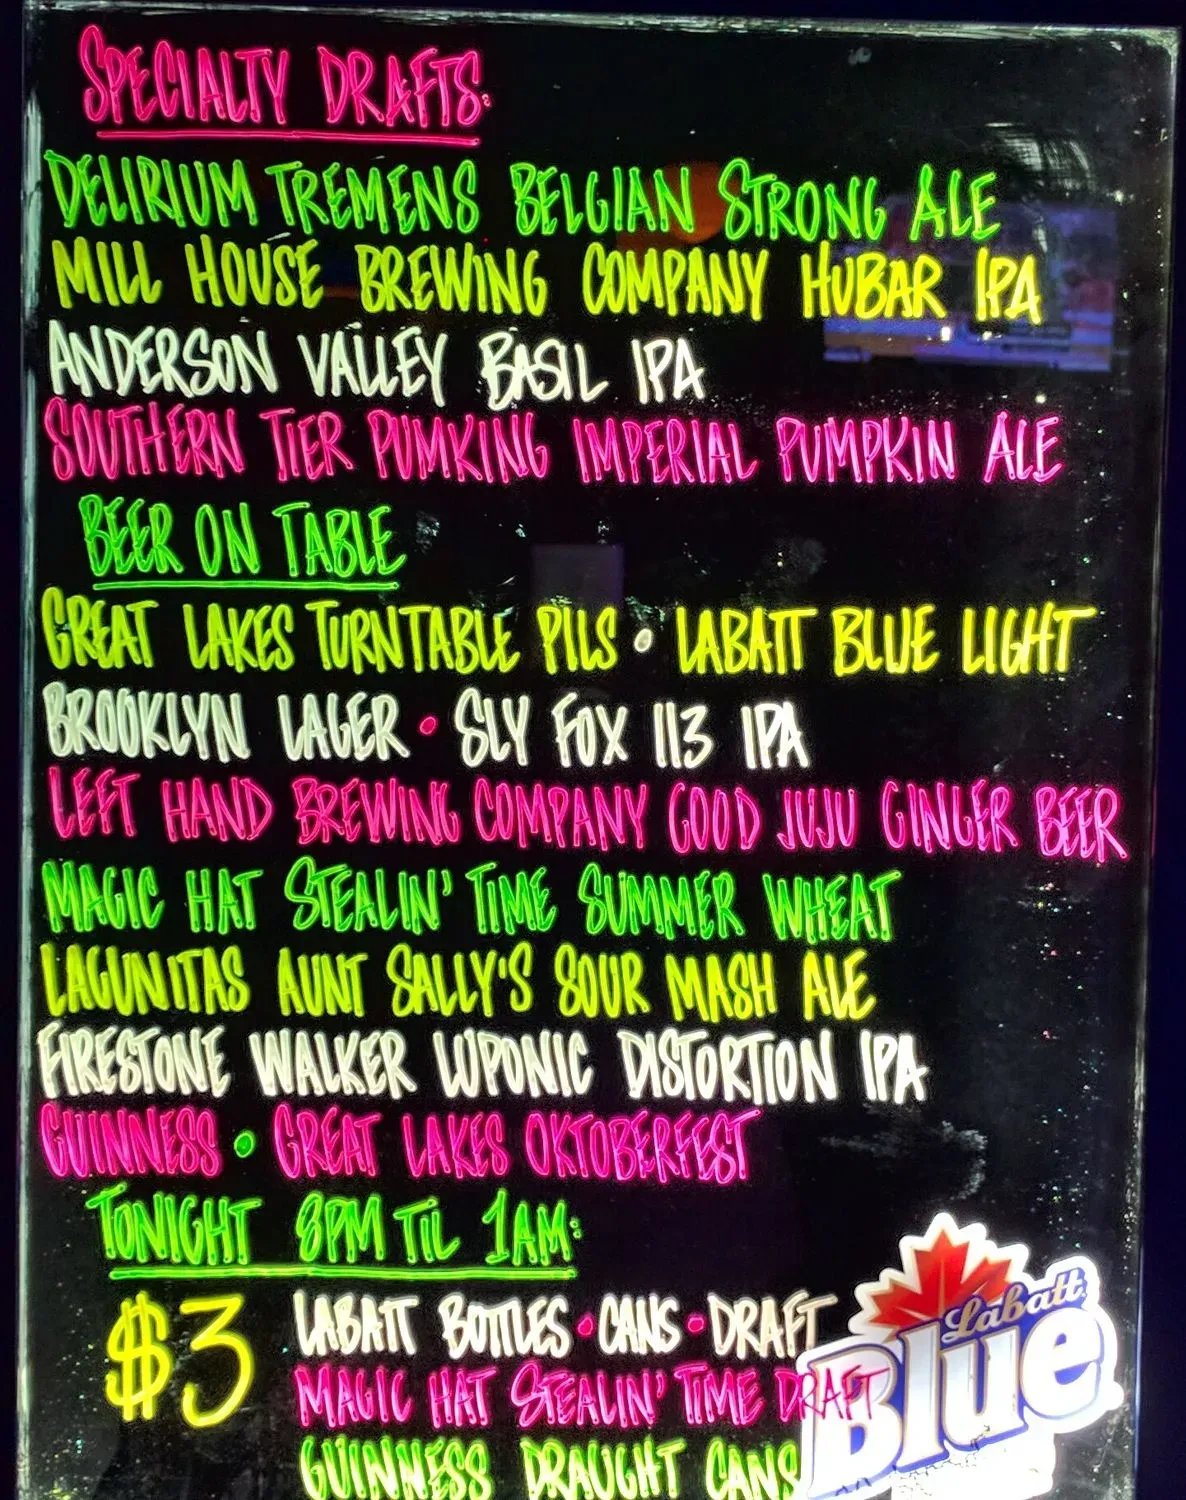 SPECIALTY DRAFTS:
DELIRIUM TREMENS BELGIAN STRONG ALE
MILL HOUSE BREWING COMPANY HUBAR IPA
ANDERSON VALLEY BASIL IPA
SOUTHERN TIER PUMKING IMPERIAL PUMPKIN ALE
BEER ON TABLE
GREAT LAKES TURNTABLE PILS • LABATT BLUE LIGHT
BROOKLYN LAGER • SLY FOX 113 IPA
LEFT HAND BREWING COMPANY GOOD JUJU GINGER BEER
MAGIC HAT STEALIN' TIME SUMMER WHEAT
LAGUNITAS AUNT SALLY'S SOUR MASH ALE
FIRESTONE WALKER LUPONIC DISTORTION IPA
GUINNESS • GREAT LAKES OKTOBERFEST
TONIGHT 8PM TIL 1AM:
$3 LABATT BOTTLES • CANS • DRAFT
MAGIC HAT STEALIN' TIME DRAFT
GUINNESS DRAUGHT CANS
Labatt
Blue